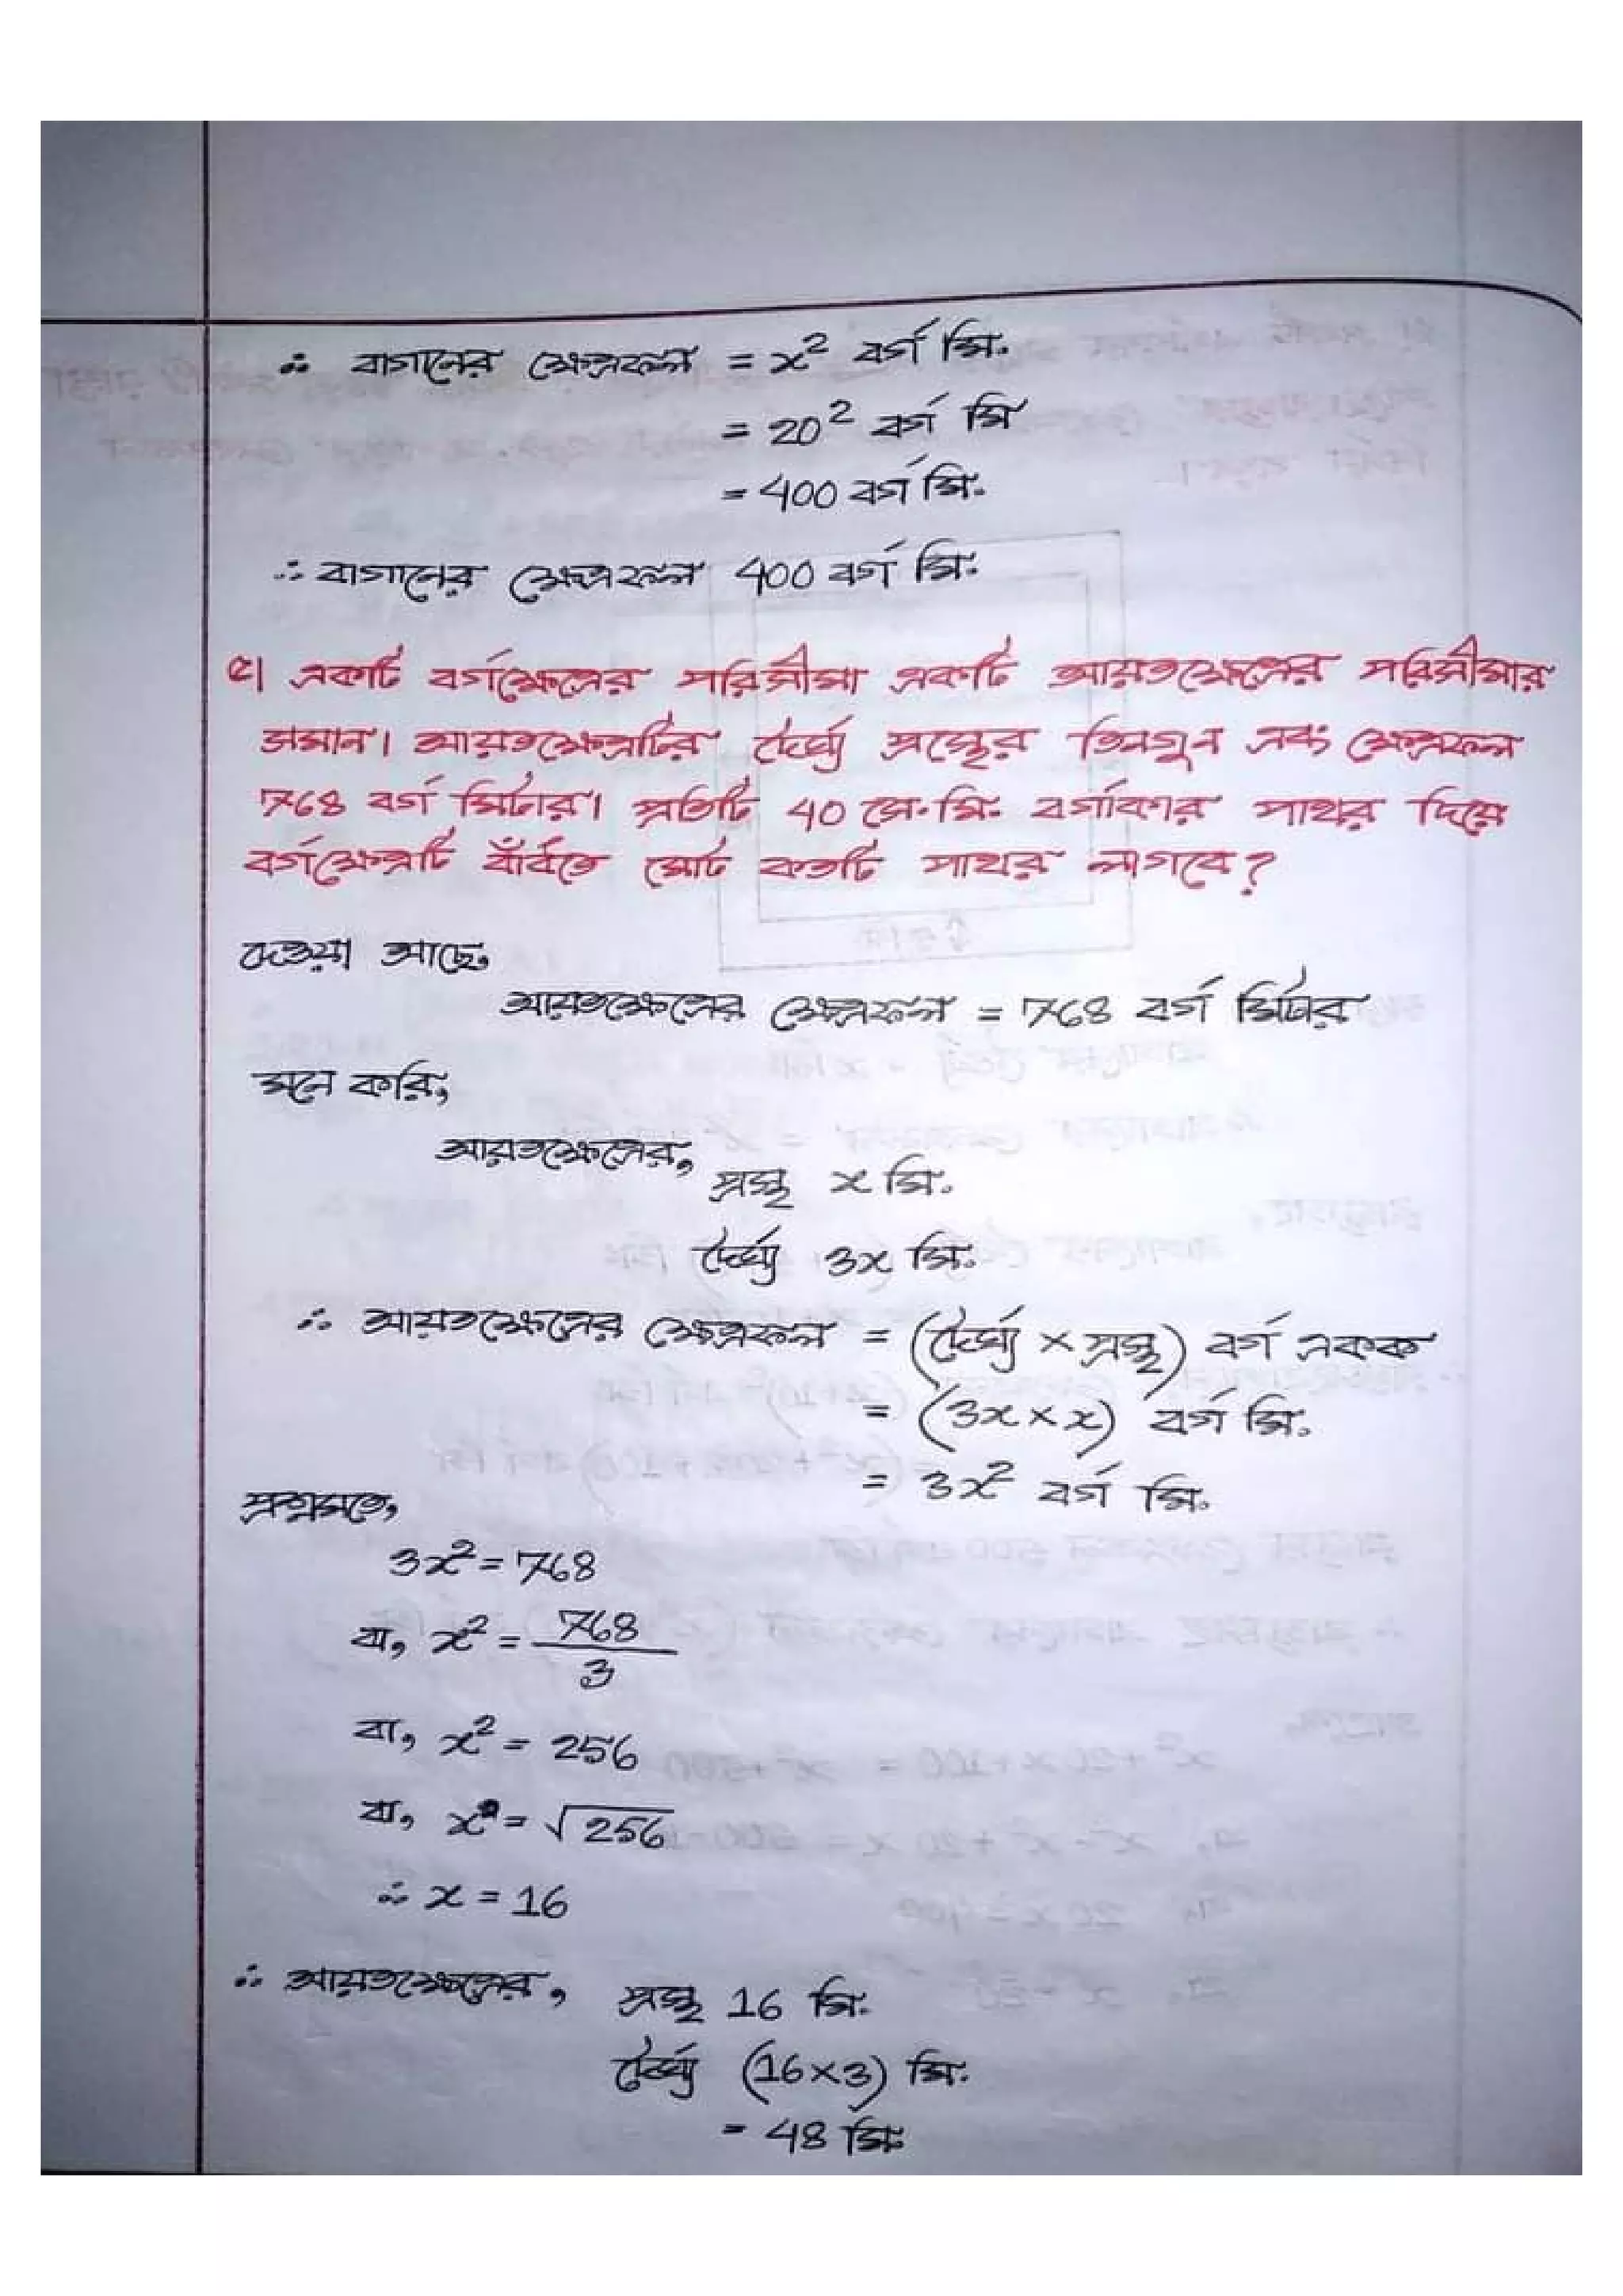 ∴ বাগানের ক্ষেত্রফল = x² বর্গ মি.
= 20² বর্গ মি
= 400 বর্গ মি.
∴ বাগানের ক্ষেত্রফল 400 বর্গ মি.
৫। একটি বর্গক্ষেত্রের পরিসীমা একটি আয়তক্ষেত্রের পরিসীমার
সমান। আয়তক্ষেত্রটির দৈর্ঘ্য প্রস্থের তিনগুন এবং ক্ষেত্রফল
768 বর্গ মিটার। প্রতিটি 40 সে.মি. বর্গাকার পাথর দিয়ে
বর্গক্ষেত্রটি বাঁধতে মোট কতটি পাথর লাগবে?
দেওয়া আছে,
আয়তক্ষেত্রের ক্ষেত্রফল = 768 বর্গ মিটার
মনে করি,
আয়তক্ষেত্রের,
প্রস্থ x মি.
দৈর্ঘ্য 3x মি.
∴ আয়তক্ষেত্রের ক্ষেত্রফল = (দৈর্ঘ্য × প্রস্থ) বর্গ একক
= (3x × x) বর্গ মি.
= 3x² বর্গ মি.
প্রশ্নমতে,
3x² = 768
বা, x² = 768/3
বা, x² = 256
বা, x = √256
∴ x = 16
∴ আয়তক্ষেত্রের, প্রস্থ 16 মি.
দৈর্ঘ্য (16×3) মি.
= 48 মি.